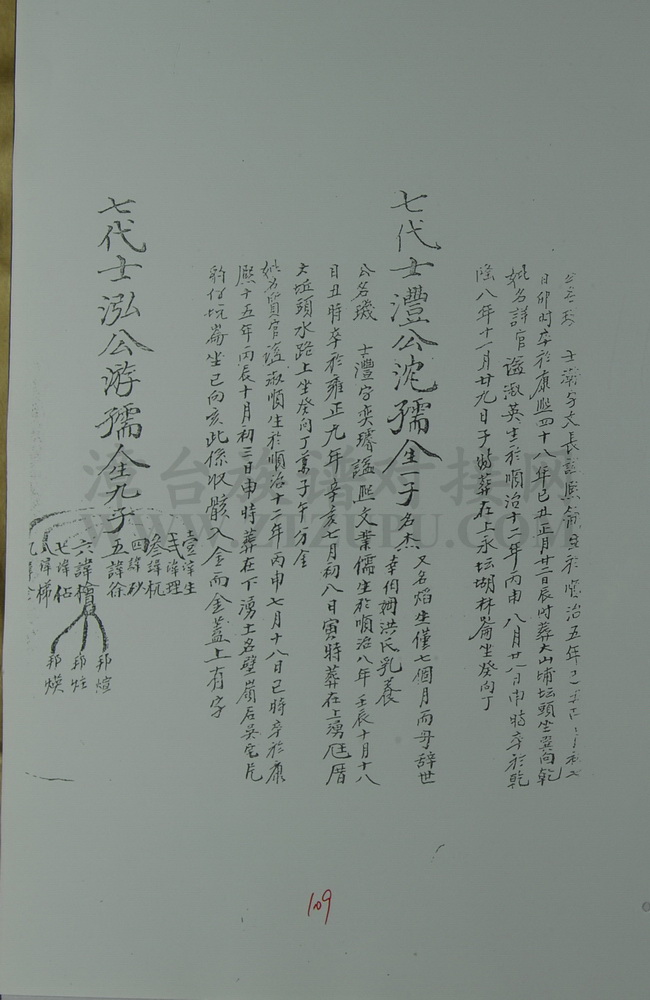 士 字文長謚熙 生於順治五年
日卯时卒於康熙四十八年己丑正月廿二日辰时葬大山埔坛頭坐巽向乾
妣名詳官謚淑英生於順治十三年丙申八月廿八日申時卒於乾
隆八年十一月廿九日子时葬在上永坛胡林崙坐癸向丁
七代士灃公沱孺人生一子名杰
又名焰生僅七個月而母辞世
幸伯姆洪氏乳養
公名璣 士灃字奕璿謚熙文業儒生於順治八年壬辰十月十八
日丑時卒於雍正九年辛亥七月初八日寅時葬在上湧厝
大坵頭水路上坐癸向丁萬子午分金
妣名質官謚淑順生於順治十三年丙申七月十八日己時卒於康
熙十五年丙辰十月初三日申時葬在下湧土名壁嶺后吳宅片
仔坑崙坐巳向亥此係收骸入金而金蓋上有字
七代士泓公游孺人生九子
壹諱生
弍諱理
叁諱杭
四諱
五諱徐
六諱檜
七諱佔
八諱梯
九諱
邦煊
邦炷
邦煐
109
澄台族谱对接网
WWW.ZTZUPU.COM